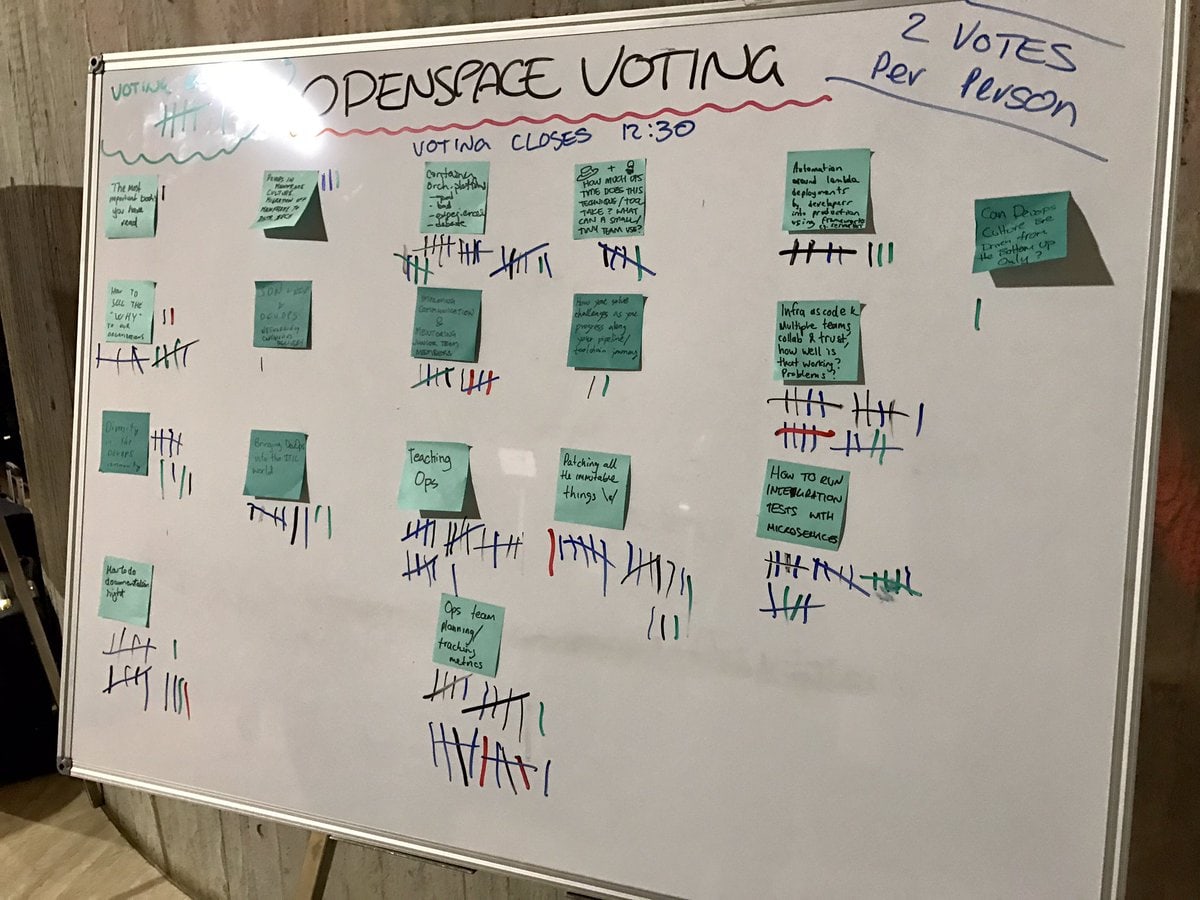 OPENSPACE VOTING
2 VOTES
Per Person
VOTING
VOTING CLOSES 12:30
The most
important books
you have
read
CULTURE
Container
Orch. platform
- good
- bad
- experiences
- debate
+
HOW MUCH OPS
TYPE DOES THIS
TECHNIQUE/TOOL
TAKE? WHAT
CAN A SMALL/
TINY TEAM USE?
Automation
around lambda
deployments
by developers
into production
using frameworks
Can Devops
Culture be
Driven from
the Bottom Up
Only?
How TO
SELL THE
"WHY"
TO OUR
ORGANISATIONS
DEVOPS
COMMUNICATION
&
MENTORING
JUNIOR TEAM
MEMBERS
How you solve
challenges as you
progress along
your pipeline/
toolchain journey
Infra as code &
Multiple teams
collab & trust,
how well is
that working?
Problems?
Diversity
in the
DEVOPS
community
Bringing DevOps
into the ITIL
world
Teaching
Ops
Patching all
the immutable
things \o/
HOW TO RUN
INTEGRATION
TESTS WITH
MICROSERVICES
How to do
documentation
right
Ops team
planning/
tracking
metrics